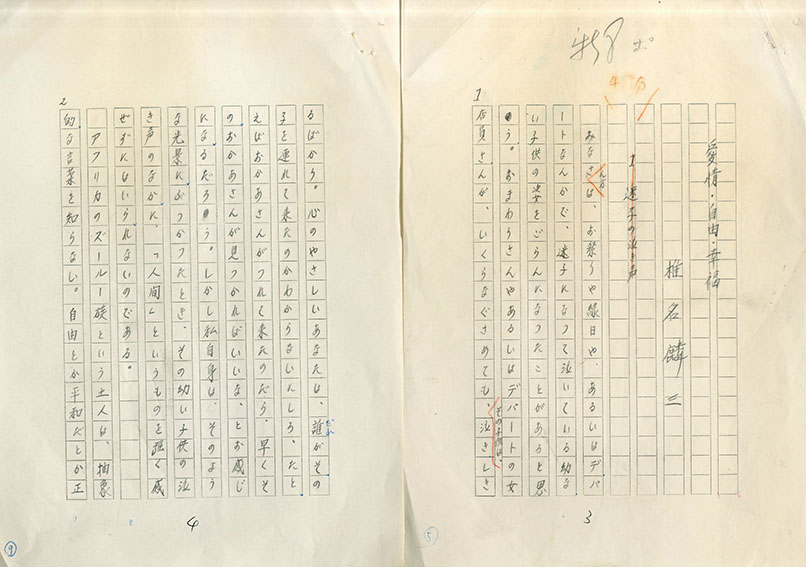 新月 ポ
4 5
1
愛情・自由・幸福
椎名麟三
1 迷子の泣き声
みなさんは、お祭りや縁日や、あるいはデパ
ートなんかで、迷子になって泣いている幼な
い子供の姿をごらんになったことがあると思
う。おまわりさんやあるいはデパートの女
店員さんが、いくらなぐさめても、その子供は、泣きじゃく
3
5
2
るばかり。心のやさしいあなたは、誰がその
子を連れて来たのかわからないにしろ、たと
えばおかあさんがつれて来たのだろう、早くそ
のおかあさんが見つかればいいな、とお感じ
になるだろう。しかし私自身は、そのよう
な光景にぶつかったとき、その幼い子供の泣
き声のなかに、「人間」というものを強く感
ぜずにはいられないのである。
アフリカのズールー族という土人は、抽象
的な言葉を知らない。自由とか平和だとか正
4
9